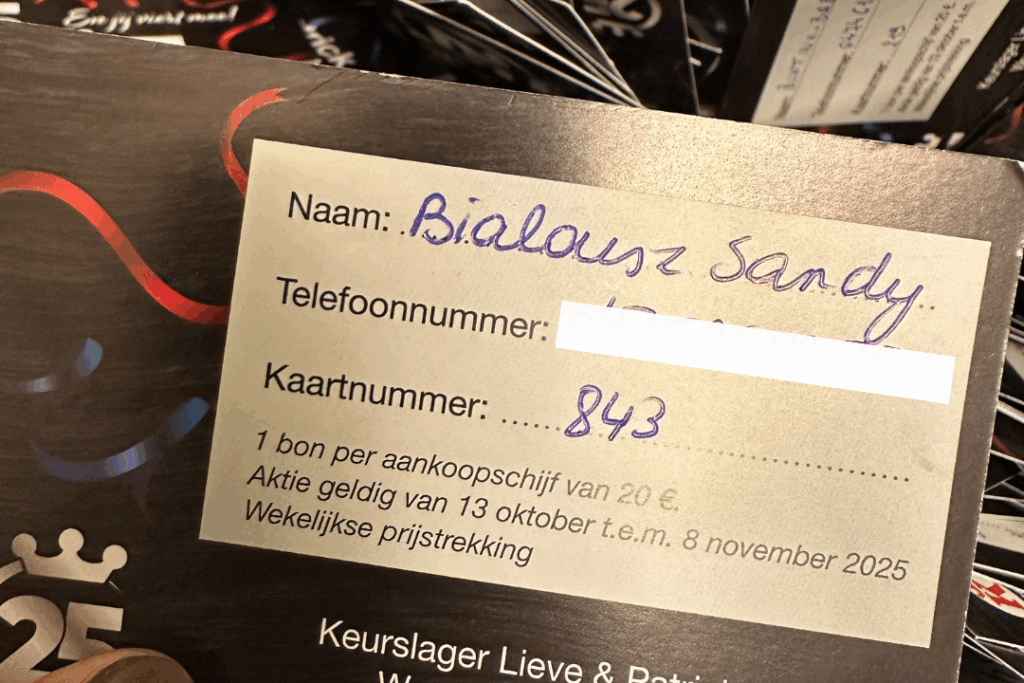 En jij viert mee!
Naam: Bialousz Sandy
Telefoonnummer:
Kaartnummer: 843
1 bon per aankoopschijf van 20 €.
Aktie geldig van 13 oktober t.e.m. 8 november 2025
Wekelijkse prijstrekking
25
Keurslager Lieve &